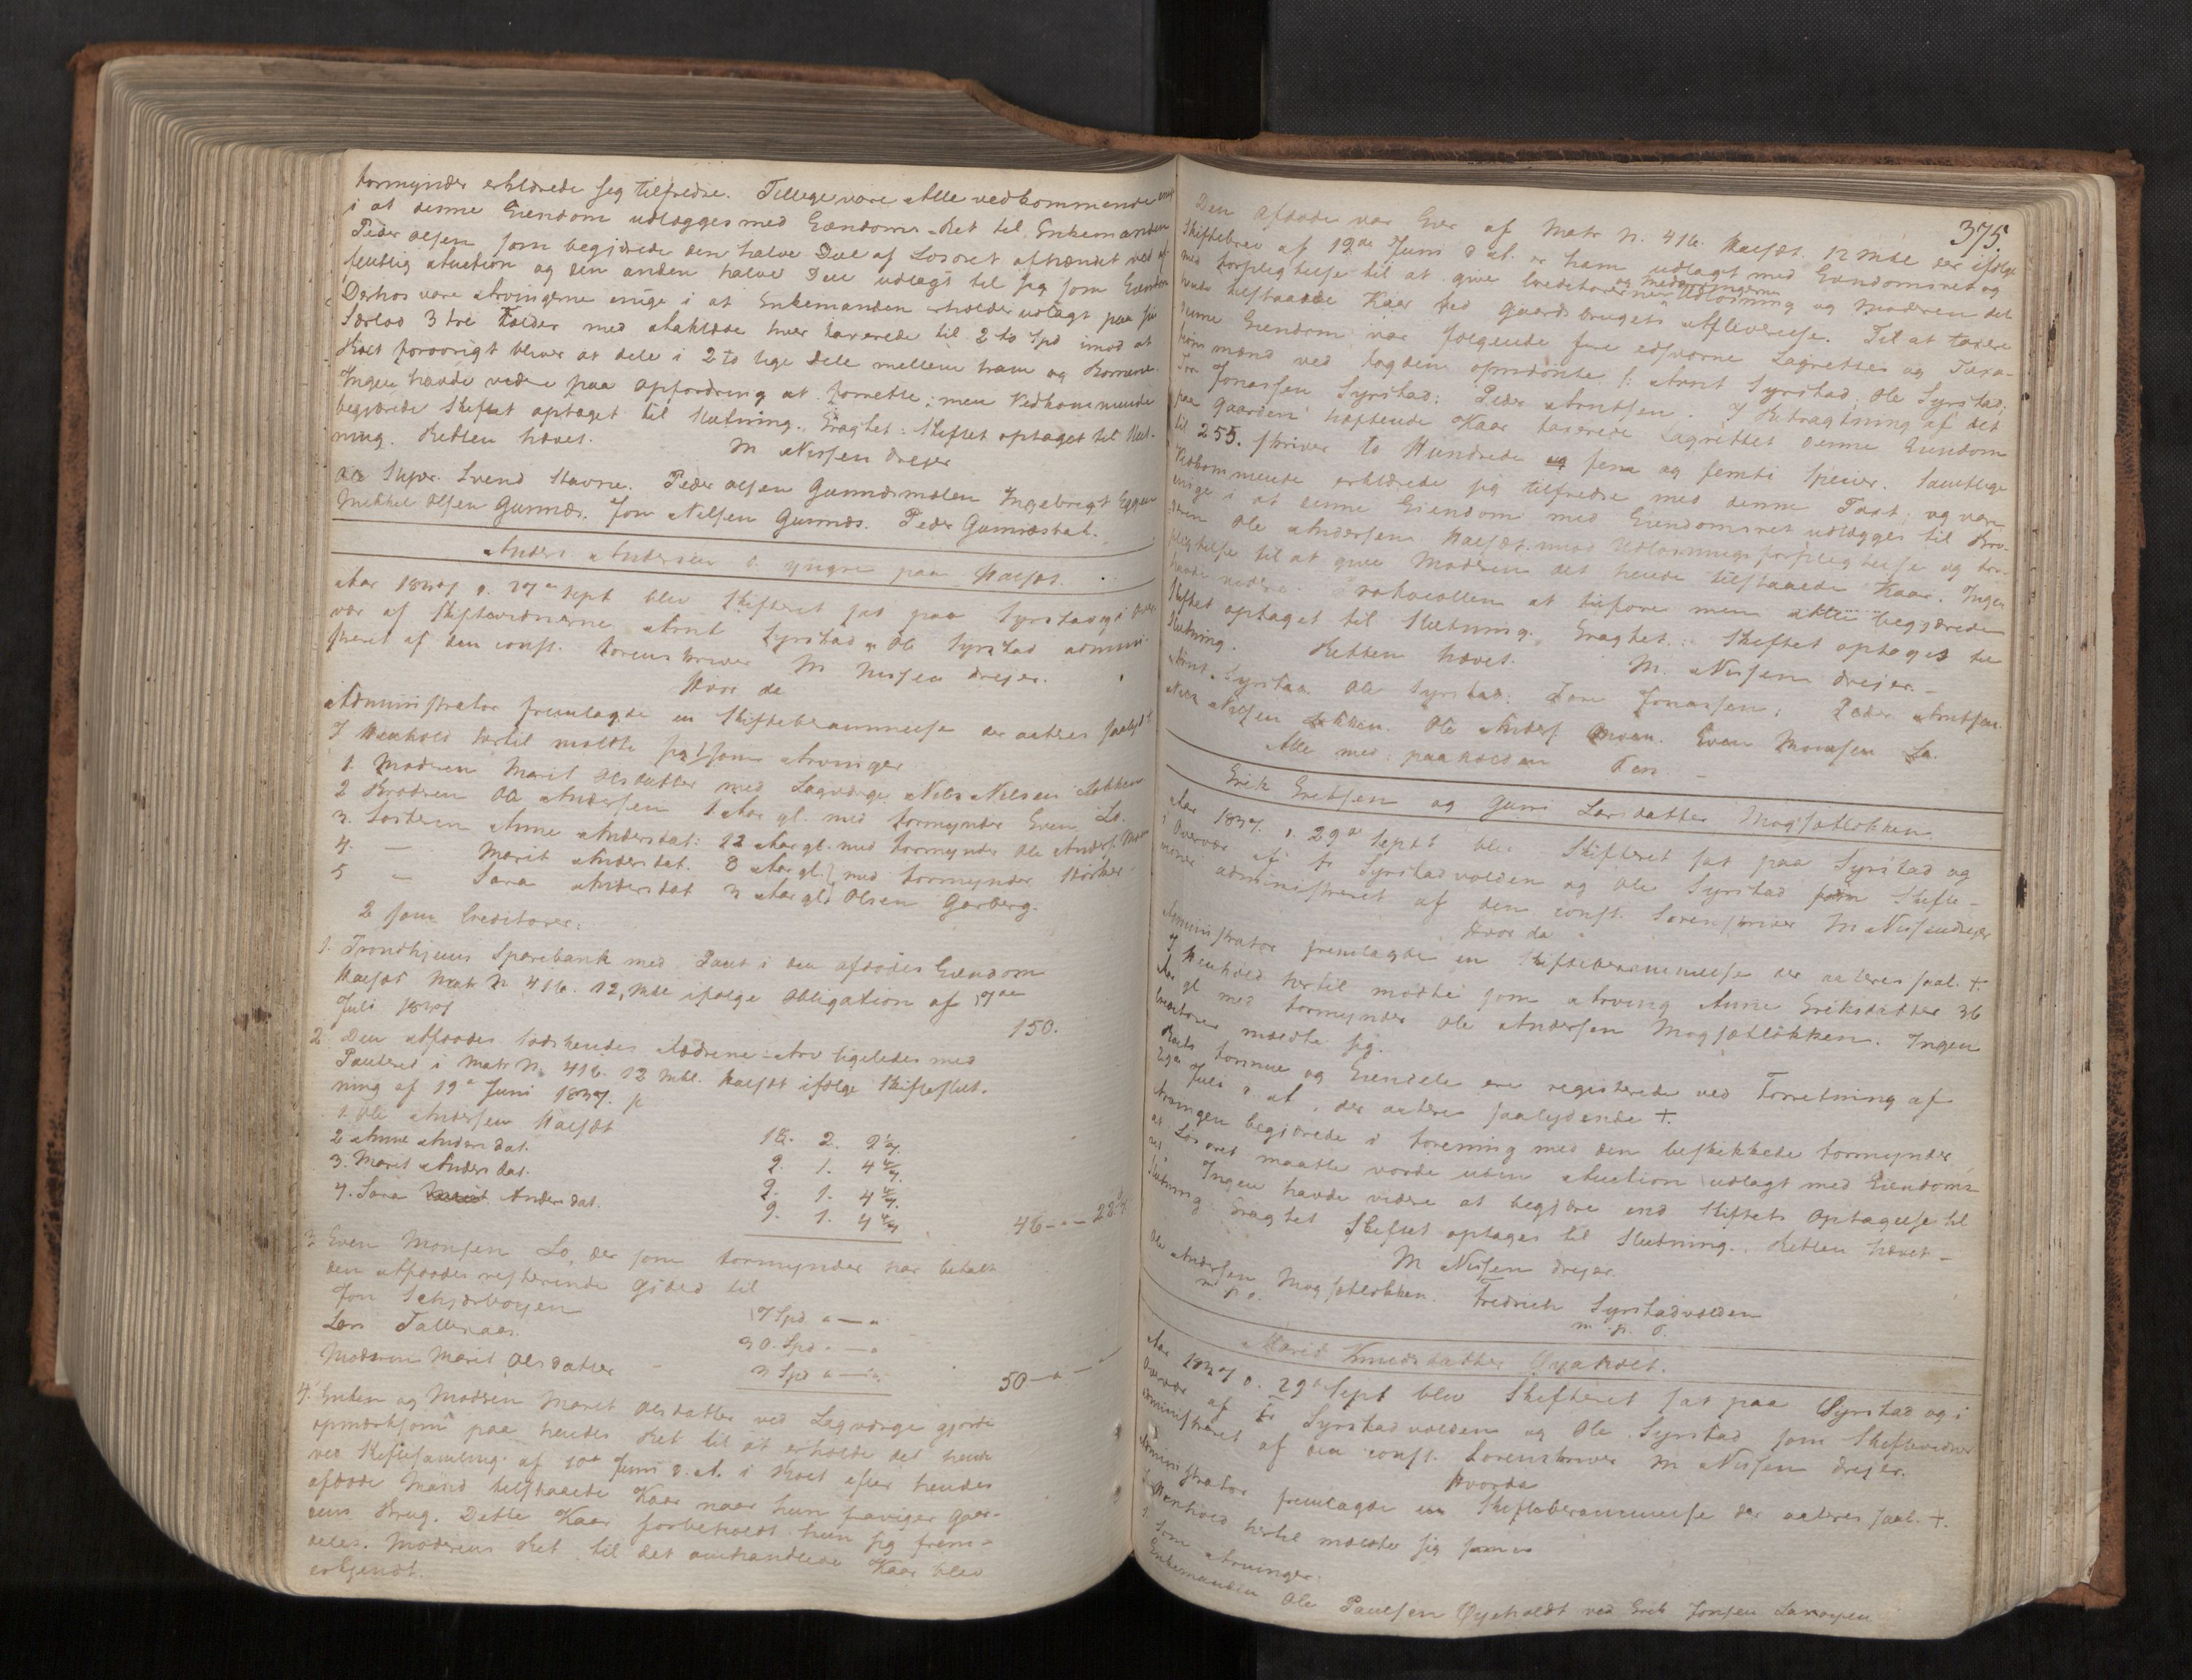 formynder erklærede sig tilfredse. Tillige vare Alle vedkommende enige
i at denne Eiendom udlægges med Eiendoms-Ret til Enkemanden
Peder Olsen som begjærede den halve Deel af Løsøret afhændet ved of-
fentlig Auction og den anden halve Deel udlagt til sig som Eiendom
Derhos vare Arvingerne enige i at Enkemanden erholder udlagt paa sin
3 tre med hver taxerede til 2 to Spd imod at
Boet forøvrigt bliver at dele i 2 to lige Dele mellem ham og Børnene.
Ingen havde videre paa Opfordring at forrette; men Vedkommende
begjærede Skiftet optaget til Slutning. Eragtet: Skiftet optages til Slut-
ning. Retten hævet.
M Nissen Dreyer
Svend Stavne. Peder Olsen Gunnesmælen Ingebrigt Eggen
Mikkel Olsen Gunnes. Jon Nilsen Gunnes. Peder
Anders Andersen d. yngre paa Kalsæt.
Aar 1837 d. 27de Sept blev Skifteret sat paa Syrstad og i Over-
vær af Skiftevidnerne Arnt Syrstad og Ole Syrstad admini-
streret af den const. Sorenskriver M Nissen Dreyer.
Hvor da
Administrator fremlagde en Skifteberammelse der acteres saalyd.
I Henhold hertil mødte sig 1/ som Arvinger
1. Moderen Marit Olsdatter med Lagværge Nils Nilsen Løkken
2 Broderen Ole Andersen 1. Aar gl. med formynder Even Lo.
3. Søsteren Anne Andersdat: 12 Aar gl. med formynder Ole Anders. Moen
4. — Marit Andersdat. 8 Aar gl. } med formynder
5 — Sara Andersdat 3 Aar gl } Olsen Garberg.
2 som Creditorer:
1. Trondhjems Sparebank med Pant i den afdødes Eiendom
Kalsæt Matr N 416. 12 Mkl ifølge Obligation af 7de
Juli 1837 150.
2. Den Afdødes Sødskendes Fædrene-Arv ligeledes med
Panteret i Matr N. 416. 12 Mkl. Kalsæt ifølge Skifteslut-
ning af 19de Juni 1837.
1. Ole Andersen Kalsæt 18. 2.
2 Anne Andersdat. 9. 1. 4 4/7.
3. Marit Andersdat. 9. 1. 4 4/7.
4. Sara Andersdat. 9. 1. 4 4/7
46 — " — 22
3. Even Monsen Lo, der som formynder har betalt
den Afdødes resterende Gjæld til
Jon 17 Spd " — "
Lars 30. Spd " — "
Moderen Marit Olsdatter 3 Spd " — "
50 — " —
4. Enken og Moderen Marit Olsdatter ved Lagværge gjorde
opmærksom paa hendes Ret til at erholde det hende
ved Skiftesamling af 10de Juni d. A. i Boet efter hendes
afdøde Mand tilstaaede Kaar naar hun fraviger Gaar-
dens Brug. Dette Kaar forbeholdt hun sig frem-
deles. Moderens Ret til det omhandlede Kaar blev
erkjendt.
375.
Den Afdøde var Eier af Matr N. 416. Kalsæt. 12 Mkl der ifølge
Skiftebrev af 19de Juni d. A. er ham udlagt med Eiendomsret og
og Medarvingerne
med Forpligtelse til at give Creditorerne Udløsning og Moderen det
hende tilstaaede Kaar ved Gaardsbrugets Aflevering. Til at taxere
denne Eiendom var følgende fire edsvorne Lagrettes og Taxa-
tions mænd ved Fogden opnævnte /: Arnt Syrstad, Ole Syrstad,
Jonassen Syrstad; Peder Arntsen. I Betragtning af det
paa Gaarden hæftende Kaar taxerede Lagrettet denne Eiendom
til 255. skriver to Hundrede fem og femti Specier. Samtlige
Vedkommende erklærede sig tilfredse med denne Taxt; og vare
enige i at denne Eiendom med Eiendomsret udlægges til Bro-
deren Ole Andersen Kalsæt mod Udløsningsforpligtelse og For-
pligtelse til at give Moderen det hende tilstaaede Kaar. Ingen
havde videre Protocollen at tilføre men alle begjærede
Skiftet optaget til Slutning. Eragtet: Skiftet optages til
Slutning. Retten hævet. M. Nissen Dreyer. —
Arnt Syrstad Ole Syrstad. Jonassen; Peder Arntsen.
Niels Nilsen Løkken. Ole Anders. Moen. Even Monssen Lo.
Alle med paaholden Pen. —
Erik Eriksen og Guri Larsdatter Mogsætløkken
Aar 1837. d. 29de Septb blev Skifteret sat paa Syrstad og
i Overvær af Fr Syrstadvolden og Ole Syrstad som Skifte-
vidner administreret af den const. Sorenskriver M Nissen Dreyer
Hvor da
Administrator fremlagde en Skifteberammelse der acteres saal. +.
I Henhold hertil mødte som Arving Anne Eriksdatter 36
Aar gl med formynder Ole Andersen Mogsætløkken. Ingen
Creditorer mældte sig.
Boets formue og Eiendele ere registerede ved Forretning af
Juli d. A. der actere saalydende +.
Arvingen begjærede i Forening med den beskikkede formynder
at Løsøret maatte vorde uden Auction udlagt med Eiendoms
ret. Ingen havde videre at begjære end Skiftets Optagelse til
Slutning Eragtet Skiftet optages til Slutning. Retten hævet —
M Nissen Dreyer
Ole Andersen Mogsætløkken. Fredrich Syrstadvolden
m. p. P. m. p. P.
Marit Knudsdatter Øyaholt.
Aar 1837 d. 29de Sept blev Skifteret sat paa Syrstad og i
Overvær af Fr Syrstadvolden og Ole Syrstad som Skiftevidner
administreret af den const. Sorenskriver M Nissen Dreyer.
Hvorda
Administrator fremlagde en Skifteberammelse der acteres saal. +.
I Henhold hertil mældte sig som
1 Som Arvinger:
Enkemanden Ole Paulsen Øyeholdt ved Erik Jonsen